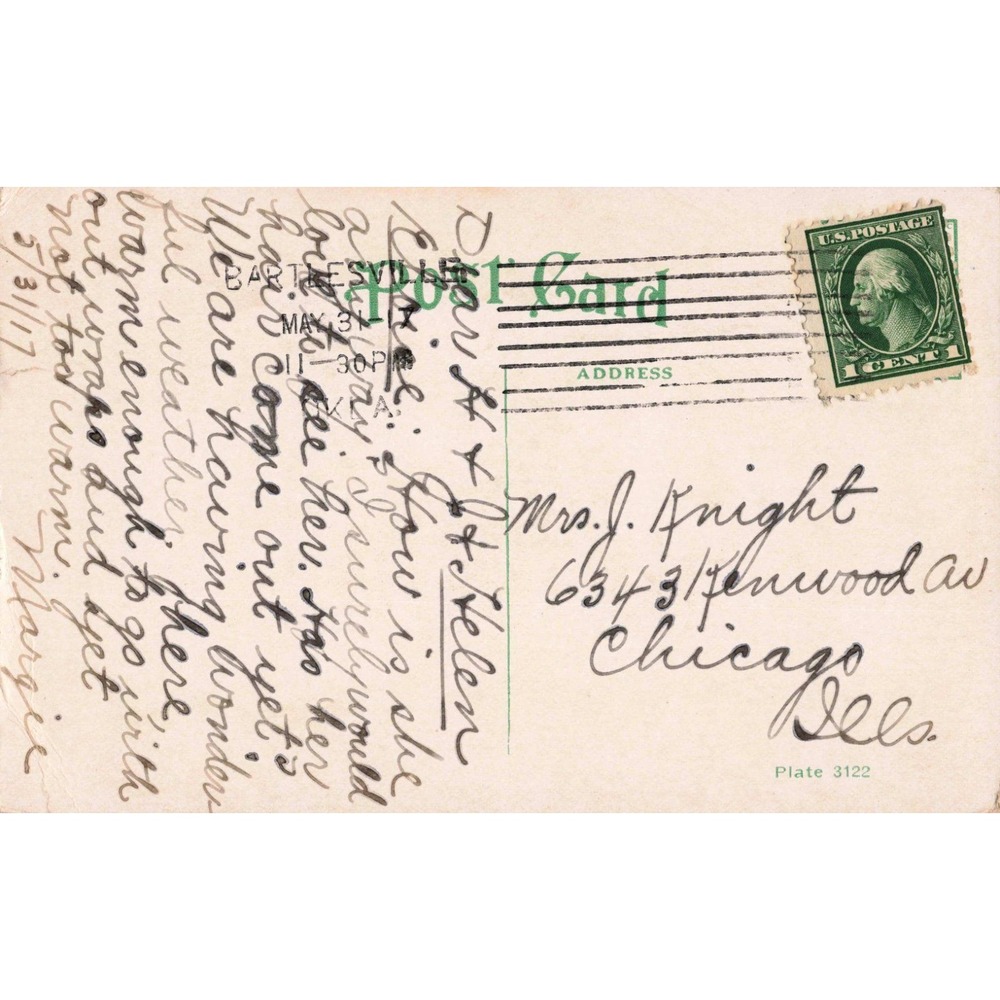 BARTLESVILLE
MAY 31 17
11-30 PM
OKLA.
Post Card
ADDRESS
U.S. POSTAGE
1 CENT 1
Dear H + J + Helen
How is she
anyway, I surely would
love to see her. Has her
hair come out yet?
We are having wonder
ful weather.
warm enough to go with
out wraps and yet
not too warm.
5/31/17 Margie
Mrs. J. Knight
6343 Kenwood Av
Chicago
Ills.
Plate 3122